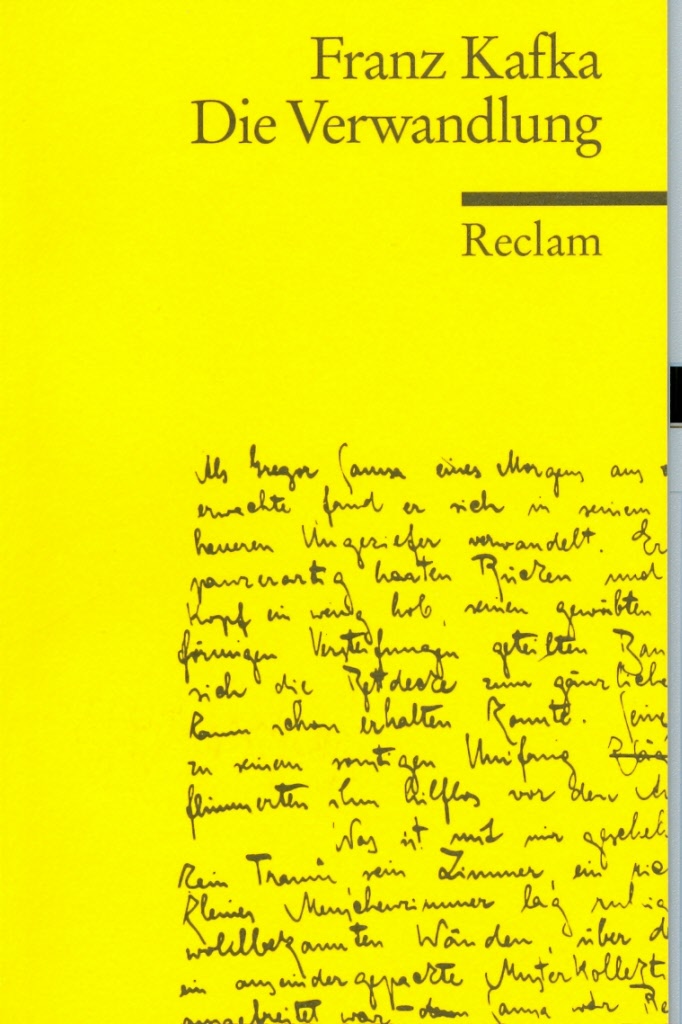 Franz Kafka
Die Verwandlung
Reclam
Als Gregor Samsa eines Morgens aus
erwachte fand er sich in seinem
heueren Ungeziefer verwandelt. Er
panzerartig harten Rücken und
Kopf ein wenig hob, seinen gewölbten
förmigen Versteifungen geteilten Bau
sich die Bettdecke zum gänzliche
kaum schon erhalten konnte. Seine
zu seinem sonstigen Umfang
flimmerten ihm hilflos vor den
Was ist mit mir gescheh
Kein Traum sein Zimmer, ein ric
kleines Menschenzimmer lag ruhig
wohlbekannten Wänden, über d
ein auseinandergepackte Musterkollekti
ausgebreitet war – Samsa war Re